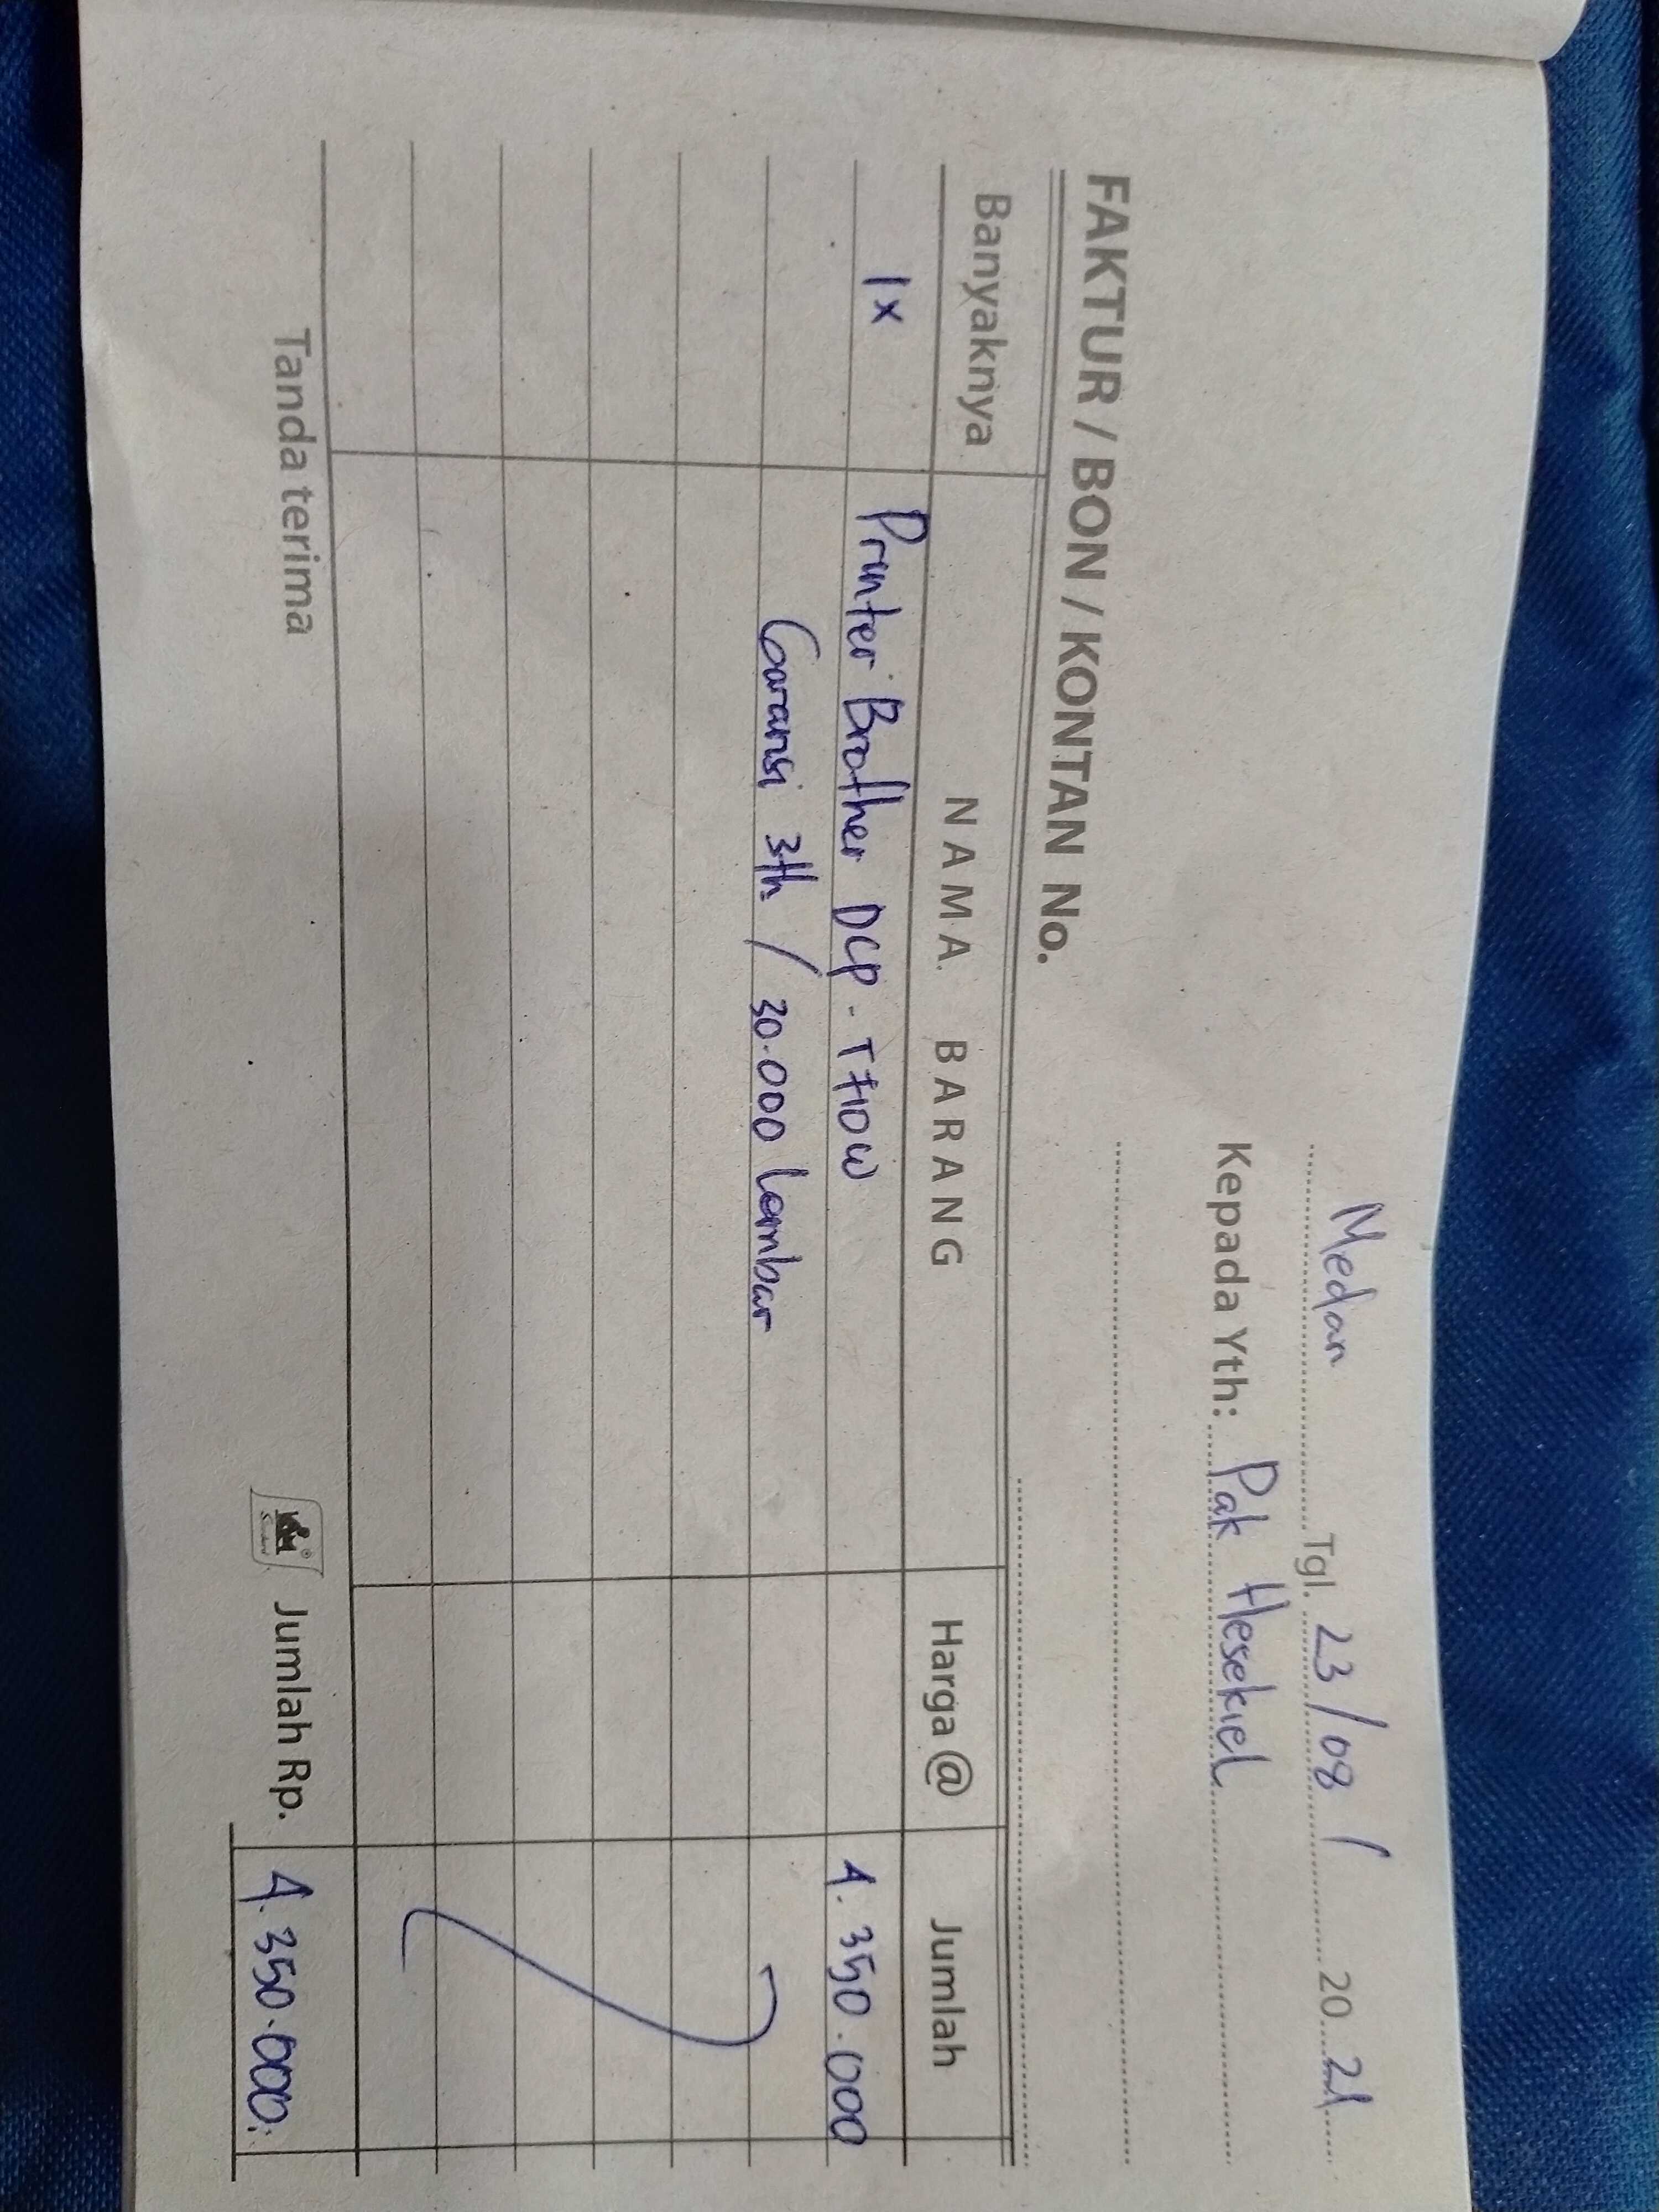 Medan Tgl. 23/08/ 20 21
Kepada Yth: Pak Hesekiel
FAKTUR / BON / KONTAN No.
Banyaknya NAMA BARANG Harga @ Jumlah
1x Printer Brother DCP-T710W 4.350.000
Garansi 3th / 30.000 lembar
Tanda terima Jumlah Rp. 4.350.000